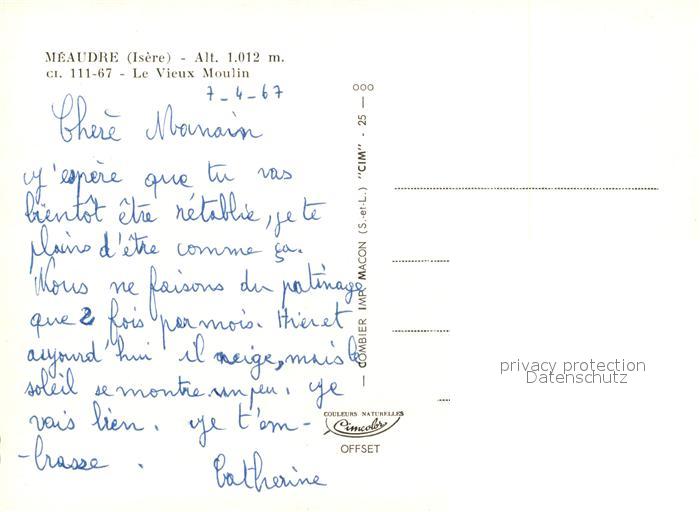 MÉAUDRE (Isère) - Alt. 1.012 m.
CI. 111-67 - Le Vieux Moulin
7-4-67
Cherè Manain
J'espère que tu vas
bientôt être rétablie, je te
plains d'être comme ça.
Nous ne faisons du patinage
que 2 fois par mois. Hier et
aujourd'hui il neige, mais le
soleil se montre un peu. Je
vais bien. Je t'em-
-brasse.
Catherine
COMBIER IMP. MACON (S.-et-L.) "CIM" - 25 — 000
COULEURS NATURELLES
Cimcolor
OFFSET
privacy protection
Datenschutz